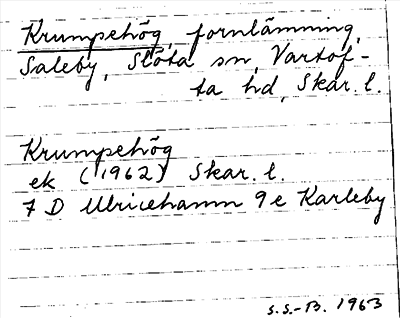 Krumpehög, fornlämning,
Saleby, Slöta sn, Vartof-
ta hd, Skar. l.
Krumpehög
ek (1962) Skar. l.
7 D Ulricehamn 9e Karleby
S.S.-B. 1963